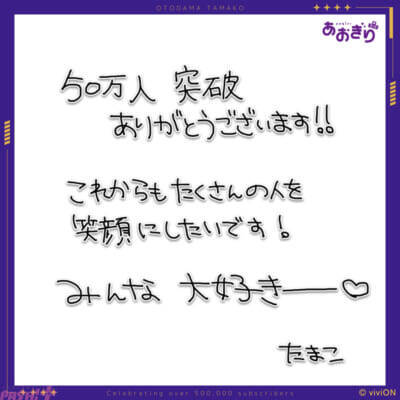 OTODAMA TAMAKO
あおぎり
50万人 突破
ありがとうございます!!
これからもたくさんの人を
笑顔にしたいです!
みんな 大好きー♡
たまこ
PASH! +
Celebrating over 500,000 subscribers
© viviON